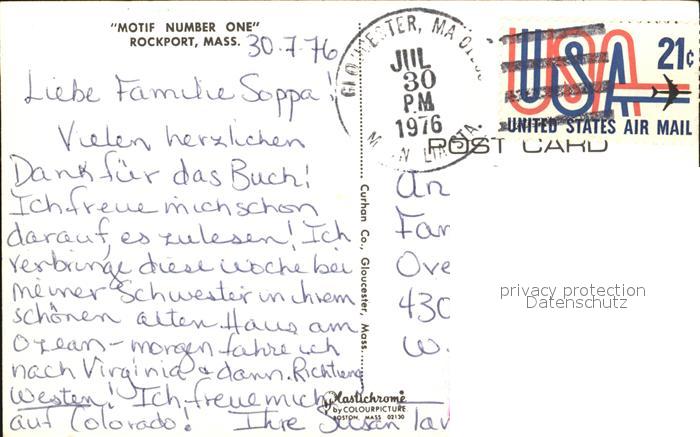 "MOTIF NUMBER ONE"
ROCKPORT, MASS.
30-7-76
Liebe Familie Soppa!
Vielen herzlichen
Dank für das Buch!
Ich freue mich schon
darauf, es zu lesen! Ich
verbringe diese Woche bei
meiner Schwester in ihrem
schönen alten Haus am
Ozean - morgen fahre ich
nach Virginia & dann Richtung
Westen! Ich freue mich
auf Colorado! Ihre Susan
Curhan Co., Gloucester, Mass.
Plastichrome
by COLOURPICTURE
BOSTON, MASS 02130
GLOUCESTER, MA
JUL
30
PM
1976
USA 21c
UNITED STATES AIR MAIL
POST CARD
An
Fam
Ove
430
W.
privacy protection
Datenschutz